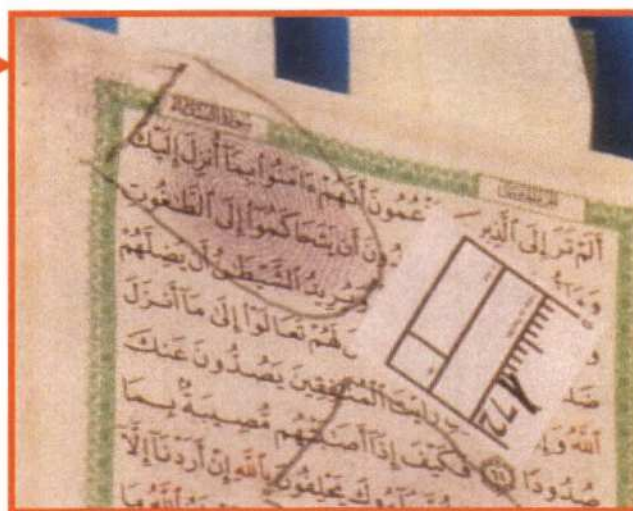 أَلَمْ تَرَ إِلَى ٱلَّذِيـ ـعُمُونَ أَنَّهُمْ ءَامَنُوا۟ بِمَآ أُنزِلَ إِلَيْكَ
ـدُونَ أَن يَتَحَاكَمُوٓا۟ إِلَى ٱلطَّـٰغُوتِ
وَيُرِيدُ ٱلشَّيْطَـٰنُ أَن يُضِلَّهُمْ
لَهُمْ تَعَالَوْا۟ إِلَىٰ مَآ أَنزَلَ
ٱللَّهُ وَإِ رَأَيْتَ ٱلْمُنَـٰفِقِينَ يَصُدُّونَ عَنكَ
صُدُودًا ٦١ فَكَيْفَ إِذَآ أَصَـٰبَتْهُم مُّصِيبَةٌۢ بِمَا
جَآءُوكَ يَحْلِفُونَ بِٱللَّهِ إِنْ أَرَدْنَآ إِلَّآ
ٱللَّهُ مَا
172